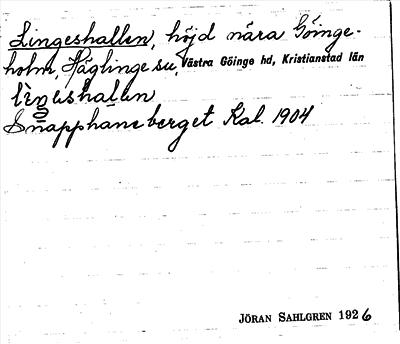 Lingeshallen, höjd nära Göinge-
holm, Häglinge sn, Västra Göinge hd, Kristianstad län
lìŋeshalen
Snapphaneberget Kal. 1904
JÖRAN SAHLGREN 1926